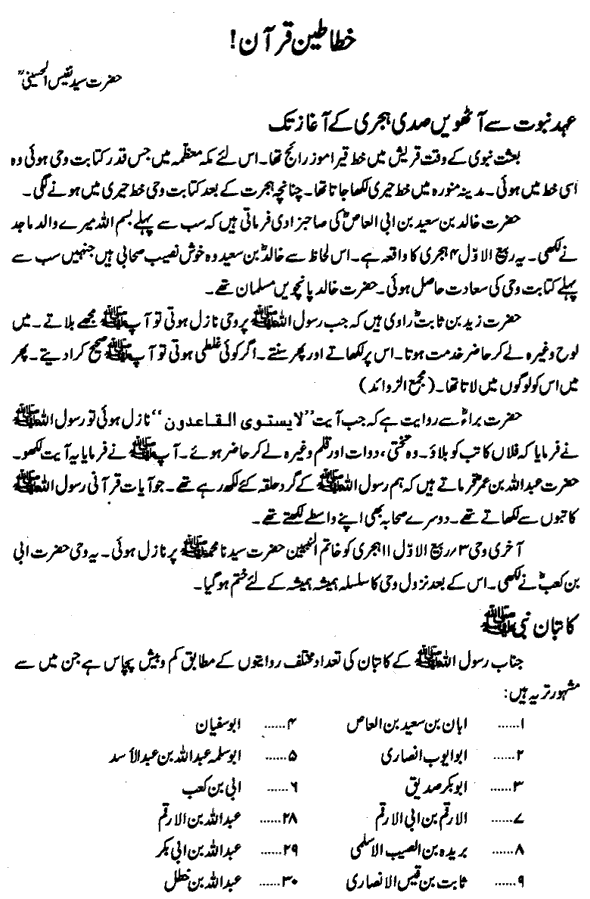 خطاطین قرآن!
حضرت سید نفیس الحسینیؒ
عہد نبوت سے آٹھویں صدی ہجری کے آغاز تک
بعثت نبوی کے وقت قریش میں خط قیراموز رائج تھا۔ اس لئے مکہ معظمہ میں جس قدر کتابت وحی ہوئی وہ
اسی خط میں ہوئی۔ مدینہ منورہ میں خط حیری لکھا جاتا تھا۔ چنانچہ ہجرت کے بعد کتابت وحی خط حیری میں ہونے لگی۔
حضرت خالد بن سعید بن ابی العاصؓ کی صاحبزادی فرماتی ہیں کہ سب سے پہلے بسم اللہ میرے والد ماجد
نے لکھی۔ یہ ربیع الاوّل ۴ ہجری کا واقعہ ہے۔ اس لحاظ سے خالدؓ بن سعید وہ خوش نصیب صحابی ہیں جنہیں سب سے
پہلے کتابت وحی کی سعادت حاصل ہوئی۔ حضرت خالد پانچویں مسلمان تھے۔
حضرت زید بن ثابتؓ راوی ہیں کہ جب رسول اللہ ﷺ پر وحی نازل ہوتی تو آپ ﷺ مجھے بلاتے۔ میں
لوح وغیرہ لے کر حاضر خدمت ہوتا۔ اس پر لکھاتے اور پھر سنتے۔ اگر کوئی غلطی ہوتی تو آپ ﷺ صحیح کرا دیتے۔ پھر
میں اس کو لوگوں میں لاتا تھا۔ (مجمع الزوائد)
حضرت براءؓ سے روایت ہے کہ جب آیت ”لا یستوی القاعدون“ نازل ہوئی تو رسول اللہ ﷺ
نے فرمایا کہ فلاں کاتب کو بلاؤ۔ وہ تختی، دوات اور قلم وغیرہ لے کر حاضر ہوئے۔ آپ ﷺ نے فرمایا یہ آیت لکھو۔
حضرت عبداللہ بن عمرؓ فرماتے ہیں کہ ہم رسول اللہ ﷺ کے گرد حلقہ کئے لکھ رہے تھے۔ جو آیات قرآنی رسول اللہ ﷺ
کاتبوں سے لکھاتے تھے۔ دوسرے صحابہ بھی اپنے واسطے لکھتے تھے۔
آخری وحی ۳/ ربیع الاوّل ۱۱ ہجری کو خاتم النبیین حضرت سیدنا محمد ﷺ پر نازل ہوئی۔ یہ وحی حضرت ابی
بن کعبؓ نے لکھی۔ اس کے بعد نزول وحی کا سلسلہ ہمیشہ ہمیشہ کے لئے ختم ہوگیا۔
کاتبان نبی ﷺ
جناب رسول اللہ ﷺ کے کاتبان کی تعداد مختلف روایتوں کے مطابق کم و بیش پچاس ہے جن میں سے
مشہور تر یہ ہیں:
۱...... ابان بن سعید بن العاص ۴...... ابوسفیان
۲...... ابو ایوب انصاری ۵...... ابوسلمہ عبداللہ بن عبدالاسد
۳...... ابوبکر صدیق ۶...... ابی بن کعب
۷...... الارقم بن ابی الارقم ۲۸...... عبداللہ بن الارقم
۸...... بریدہ بن الصیب الاسلمی ۲۹...... عبداللہ بن ابی بکر
۹...... ثابت بن قیس الانصاری ۳۰...... عبداللہ بن خطل